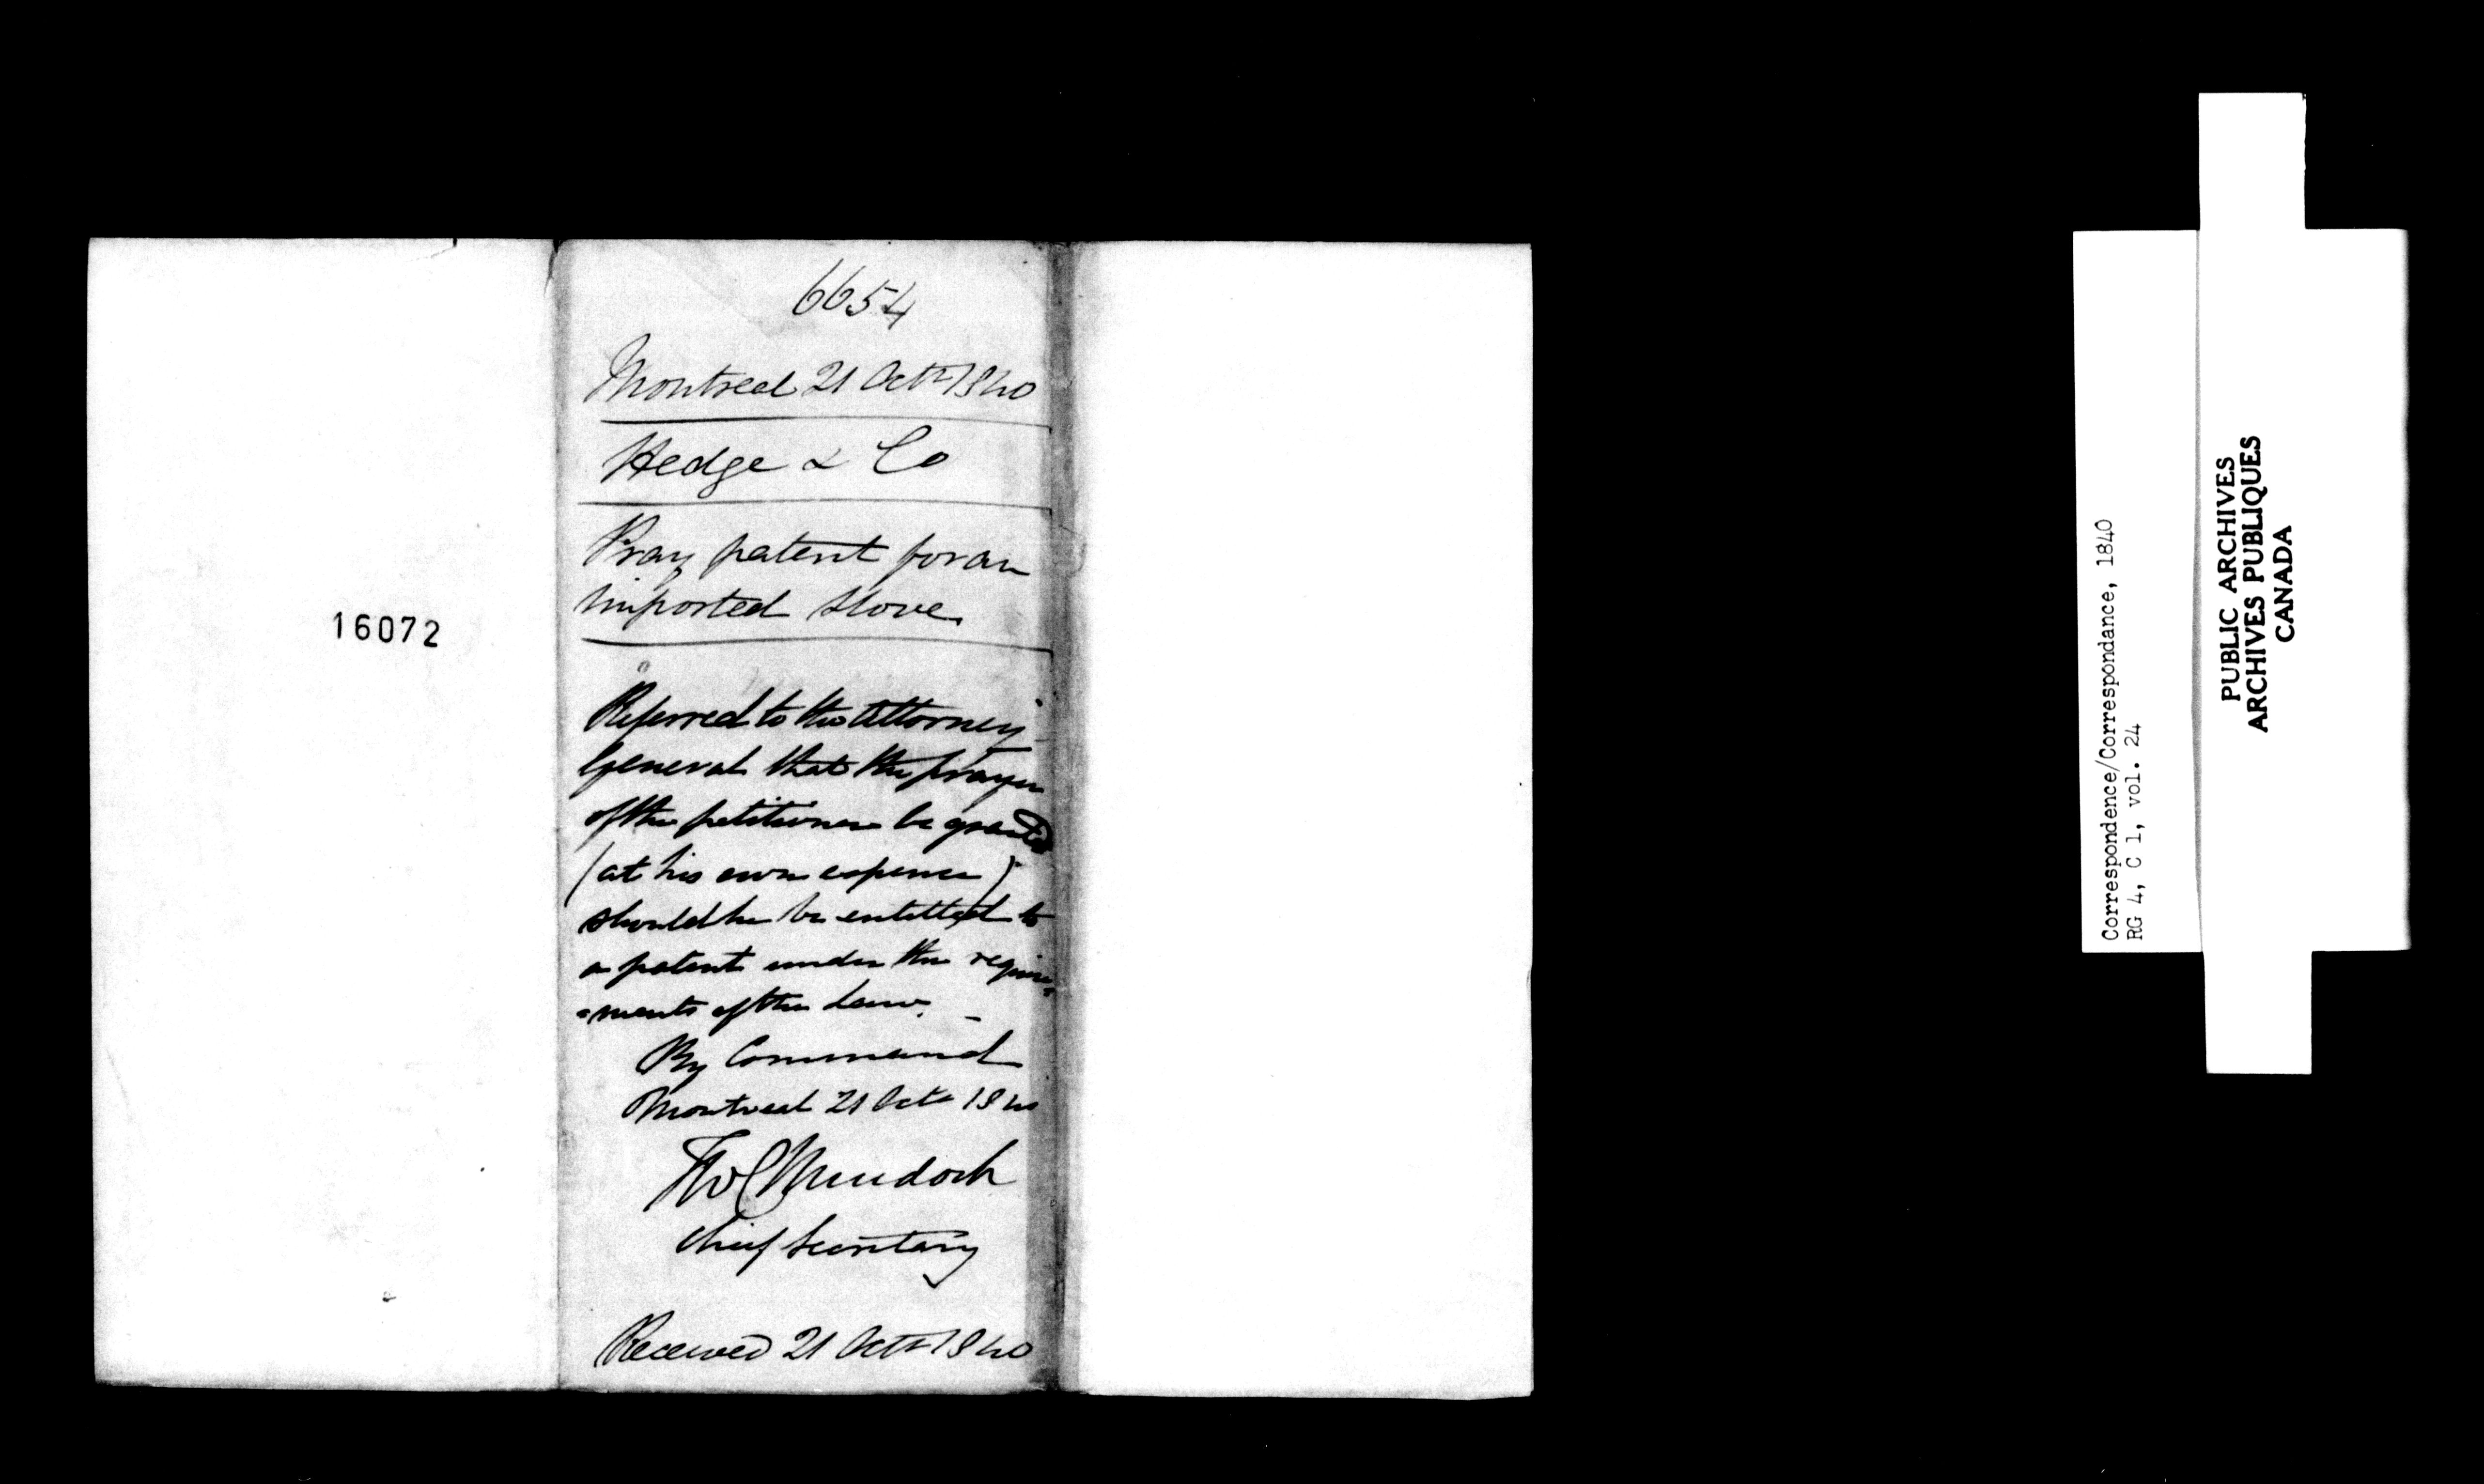 16072
6654
Montreal 21 Octr 1840
Hedge & Co
Pray patent for an
imported Stove
Referred to the Attorney
General that the prayer
of the petitioner be granted
(at his own expense)
should he be entitled to
a patent under the require-
=ments of the Law. _
By Command
Montreal 21 Octr 1840
Tho C Murdoch
Chief Secretary
Received 21 Octr 1840
Correspondence/Correspondance, 1840
RG 4, C 1, vol. 24
PUBLIC ARCHIVES
ARCHIVES PUBLIQUES
CANADA